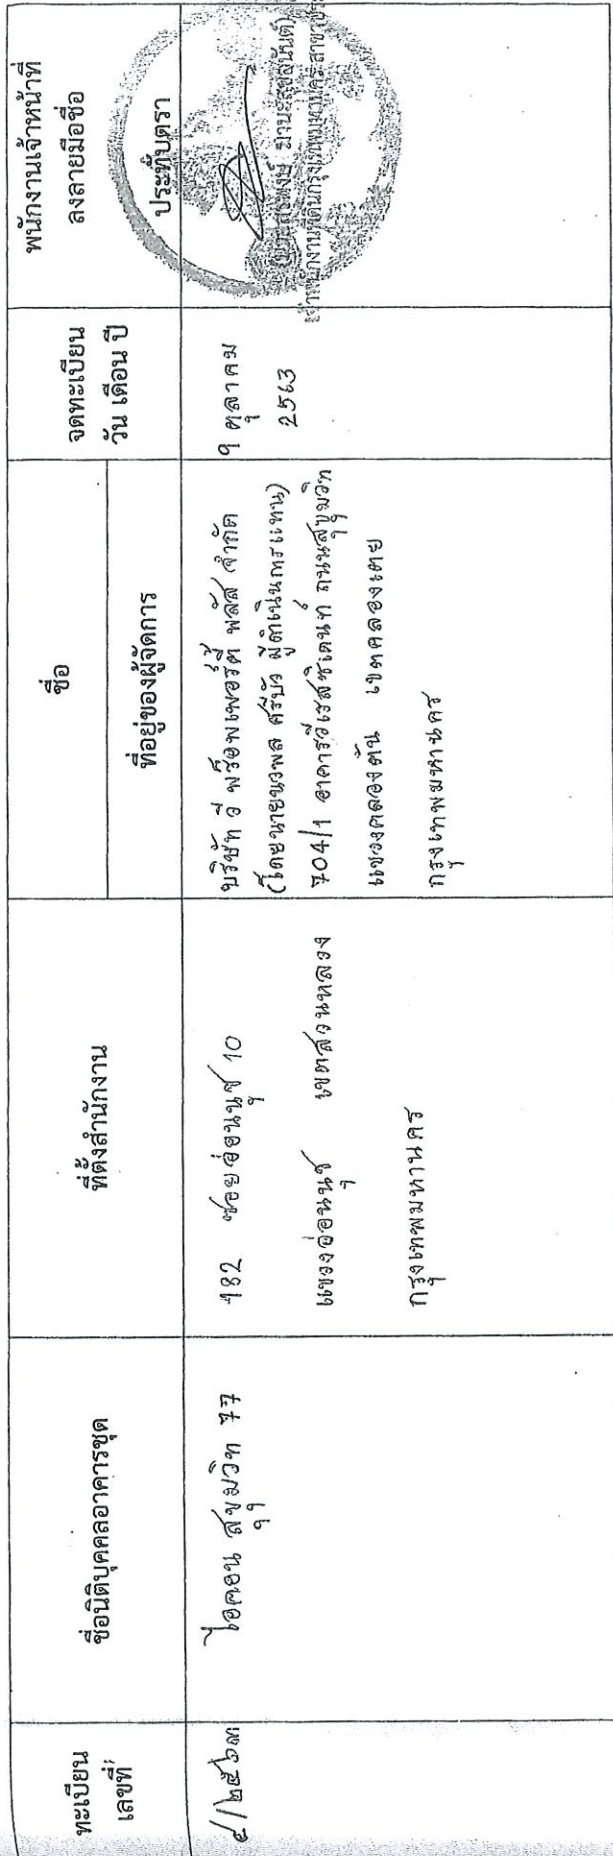 ทะเบียน
เลขที่
ชื่อนิติบุคคลอาคารชุด
ที่ตั้งสำนักงาน
ชื่อ
ที่อยู่ของผู้จัดการ
จดทะเบียน
วัน เดือน ปี
พนักงานเจ้าหน้าที่
ลงลายมือชื่อ
ประทับตรา
/๒๕๖๓
ไอคอน สุขุมวิท 77
182 ซอยอ่อนนุช 10
แขวงอ่อนนุช เขตสวนหลวง
กรุงเทพมหานคร
บริษัท วี พร็อพเพอร์ตี้ พลัส จำกัด
(โดยนายนวพล ศรีบัว ผู้ดำเนินการแทน)
704/1 อาคารวีเรสซิเดนท์ ถนนสุขุมวิท
แขวงคลองตัน เขตคลองเตย
กรุงเทพมหานคร
9 ตุลาคม
2563
เจ้าพนักงานที่ดินกรุงเทพมหานคร สาขา